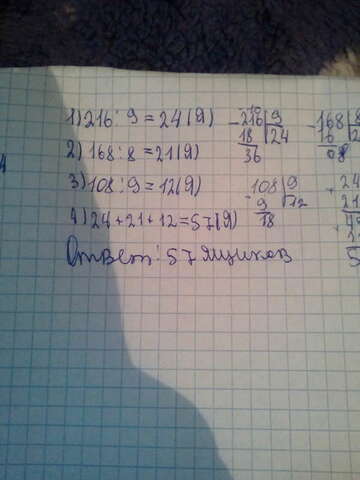 1) 216 : 9 = 24 (Я)
2) 168 : 8 = 21 (Я)
3) 108 : 9 = 12 (Я)
4) 24 + 21 + 12 = 57 (Я)
Ответ: 57 ящиков
- 216 9
18 24
36
- 168 8
16 2
08
- 108 9
9 12
18
+ 24
21